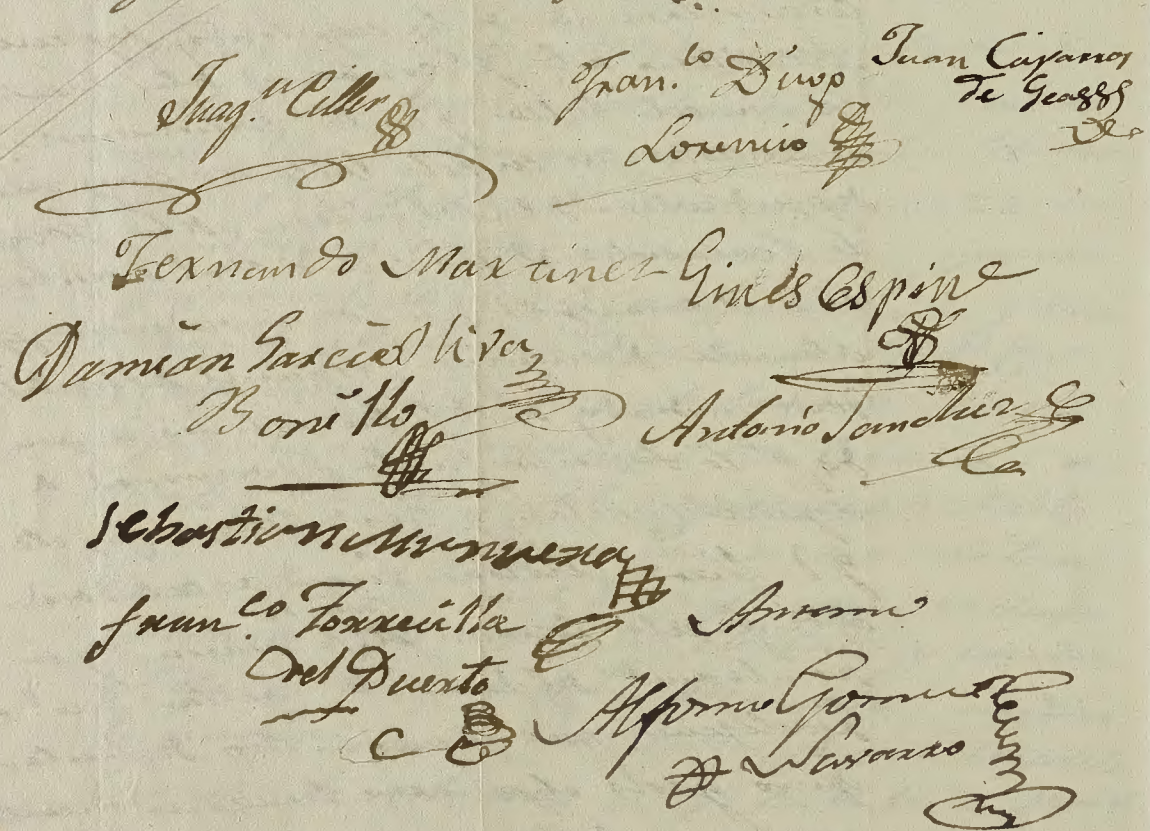 Juaq.n Ciller
Fran.co Diego
Lorencio
Juan Caparros
de
Fernando Martinez
Gines Espin
Damian Garcia Oliva
Bonillo
Antonio Sanchez
Sebastian Munuera
fran.co Torrecilla
del Puerto
Antemi
Alfonso Gomez
Navarro